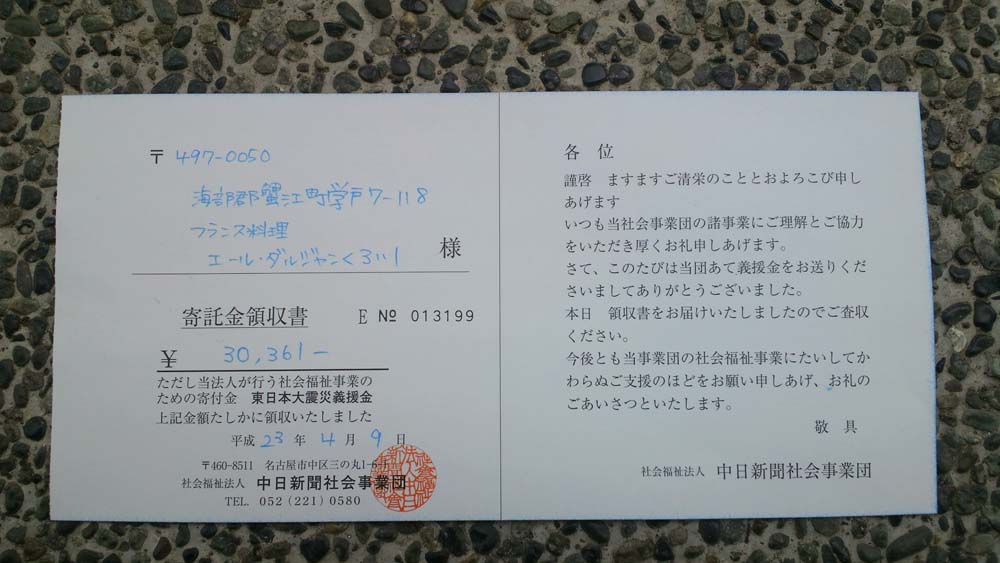 〒 497-0050
海部郡蟹江町学戸7-118
フランス料理
エール・ダルジャン<3ツ1
様
寄託金領収書 E № 013199
¥ 30,361-
ただし当法人が行う社会福祉事業の
ための寄付金 東日本大震災義援金
上記金額たしかに領収いたしました
平成 23 年 4 月 9 日
〒460-8511 名古屋市中区三の丸1-6-1
社会福祉法人 中日新聞社会事業団
TEL. 052(221)0580
各 位
謹啓 ますますご清栄のこととおよろこび申し
あげます
いつも当社会事業団の諸事業にご理解とご協力
をいただき厚くお礼申しあげます。
さて、このたびは当団あて義援金をお送りくだ
さいましてありがとうございました。
本日 領収書をお届けいたしましたのでご査収
ください。
今後とも当事業団の社会福祉事業にたいしてか
わらぬご支援のほどをお願い申しあげ、お礼の
ごあいさつといたします。
敬 具
社会福祉法人 中日新聞社会事業団